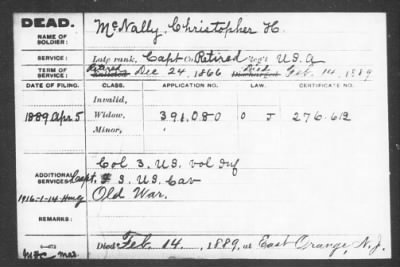 DEAD.
NAME OF SOLDIER: McNally, Christopher H.
SERVICE: Late rank, Capt on Retired Reg't U.S.A
TERM OF SERVICE: Retired Dec 24, 1866 Died Feb. 14, 1889
DATE OF FILING. CLASS. APPLICATION NO. LAW. CERTIFICATE NO.
Invalid,
1889 Apr 5 Widow, 391.080 O J 276.612
Minor,
Col 3. US. Vol Inf
ADDITIONAL SERVICES: Capt. 3. US. Cav
Old War.
REMARKS:
Died Feb. 14, 1889, at East Orange, N.J.